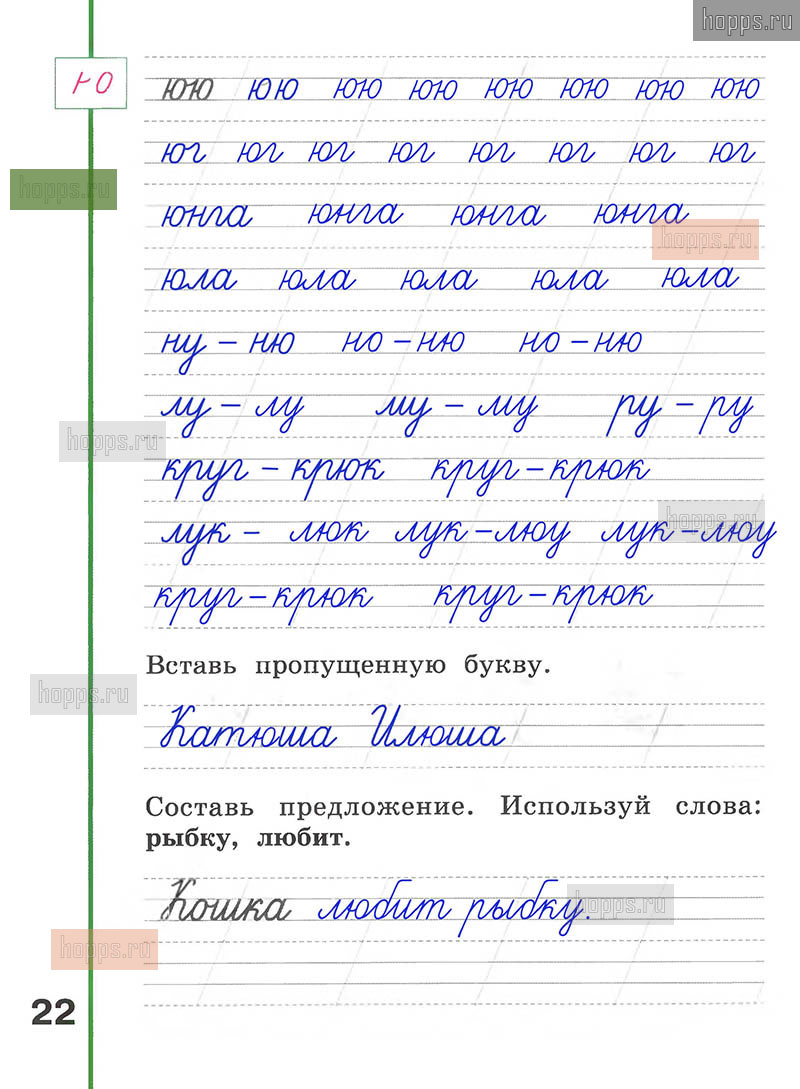 hopps.ru
ю
юю юю юю юю юю юю юю юю
юг юг юг юг юг юг юг юг
hopps.ru
юнга юнга юнга юнга
hopps.ru
юла юла юла юла юла
ну – ню но – ню но – ню
лу – лу му – му ру – ру
hopps.ru
круг – крюк круг – крюк
hopps.ru
лук – люк лук – люу лук – люу
круг – крюк круг – крюк
Вставь пропущенную букву.
hopps.ru
Катюша Илюша
Составь предложение. Используй слова:
рыбку, любит.
Кошка любит рыбку.
hopps.ru
hopps.ru
22